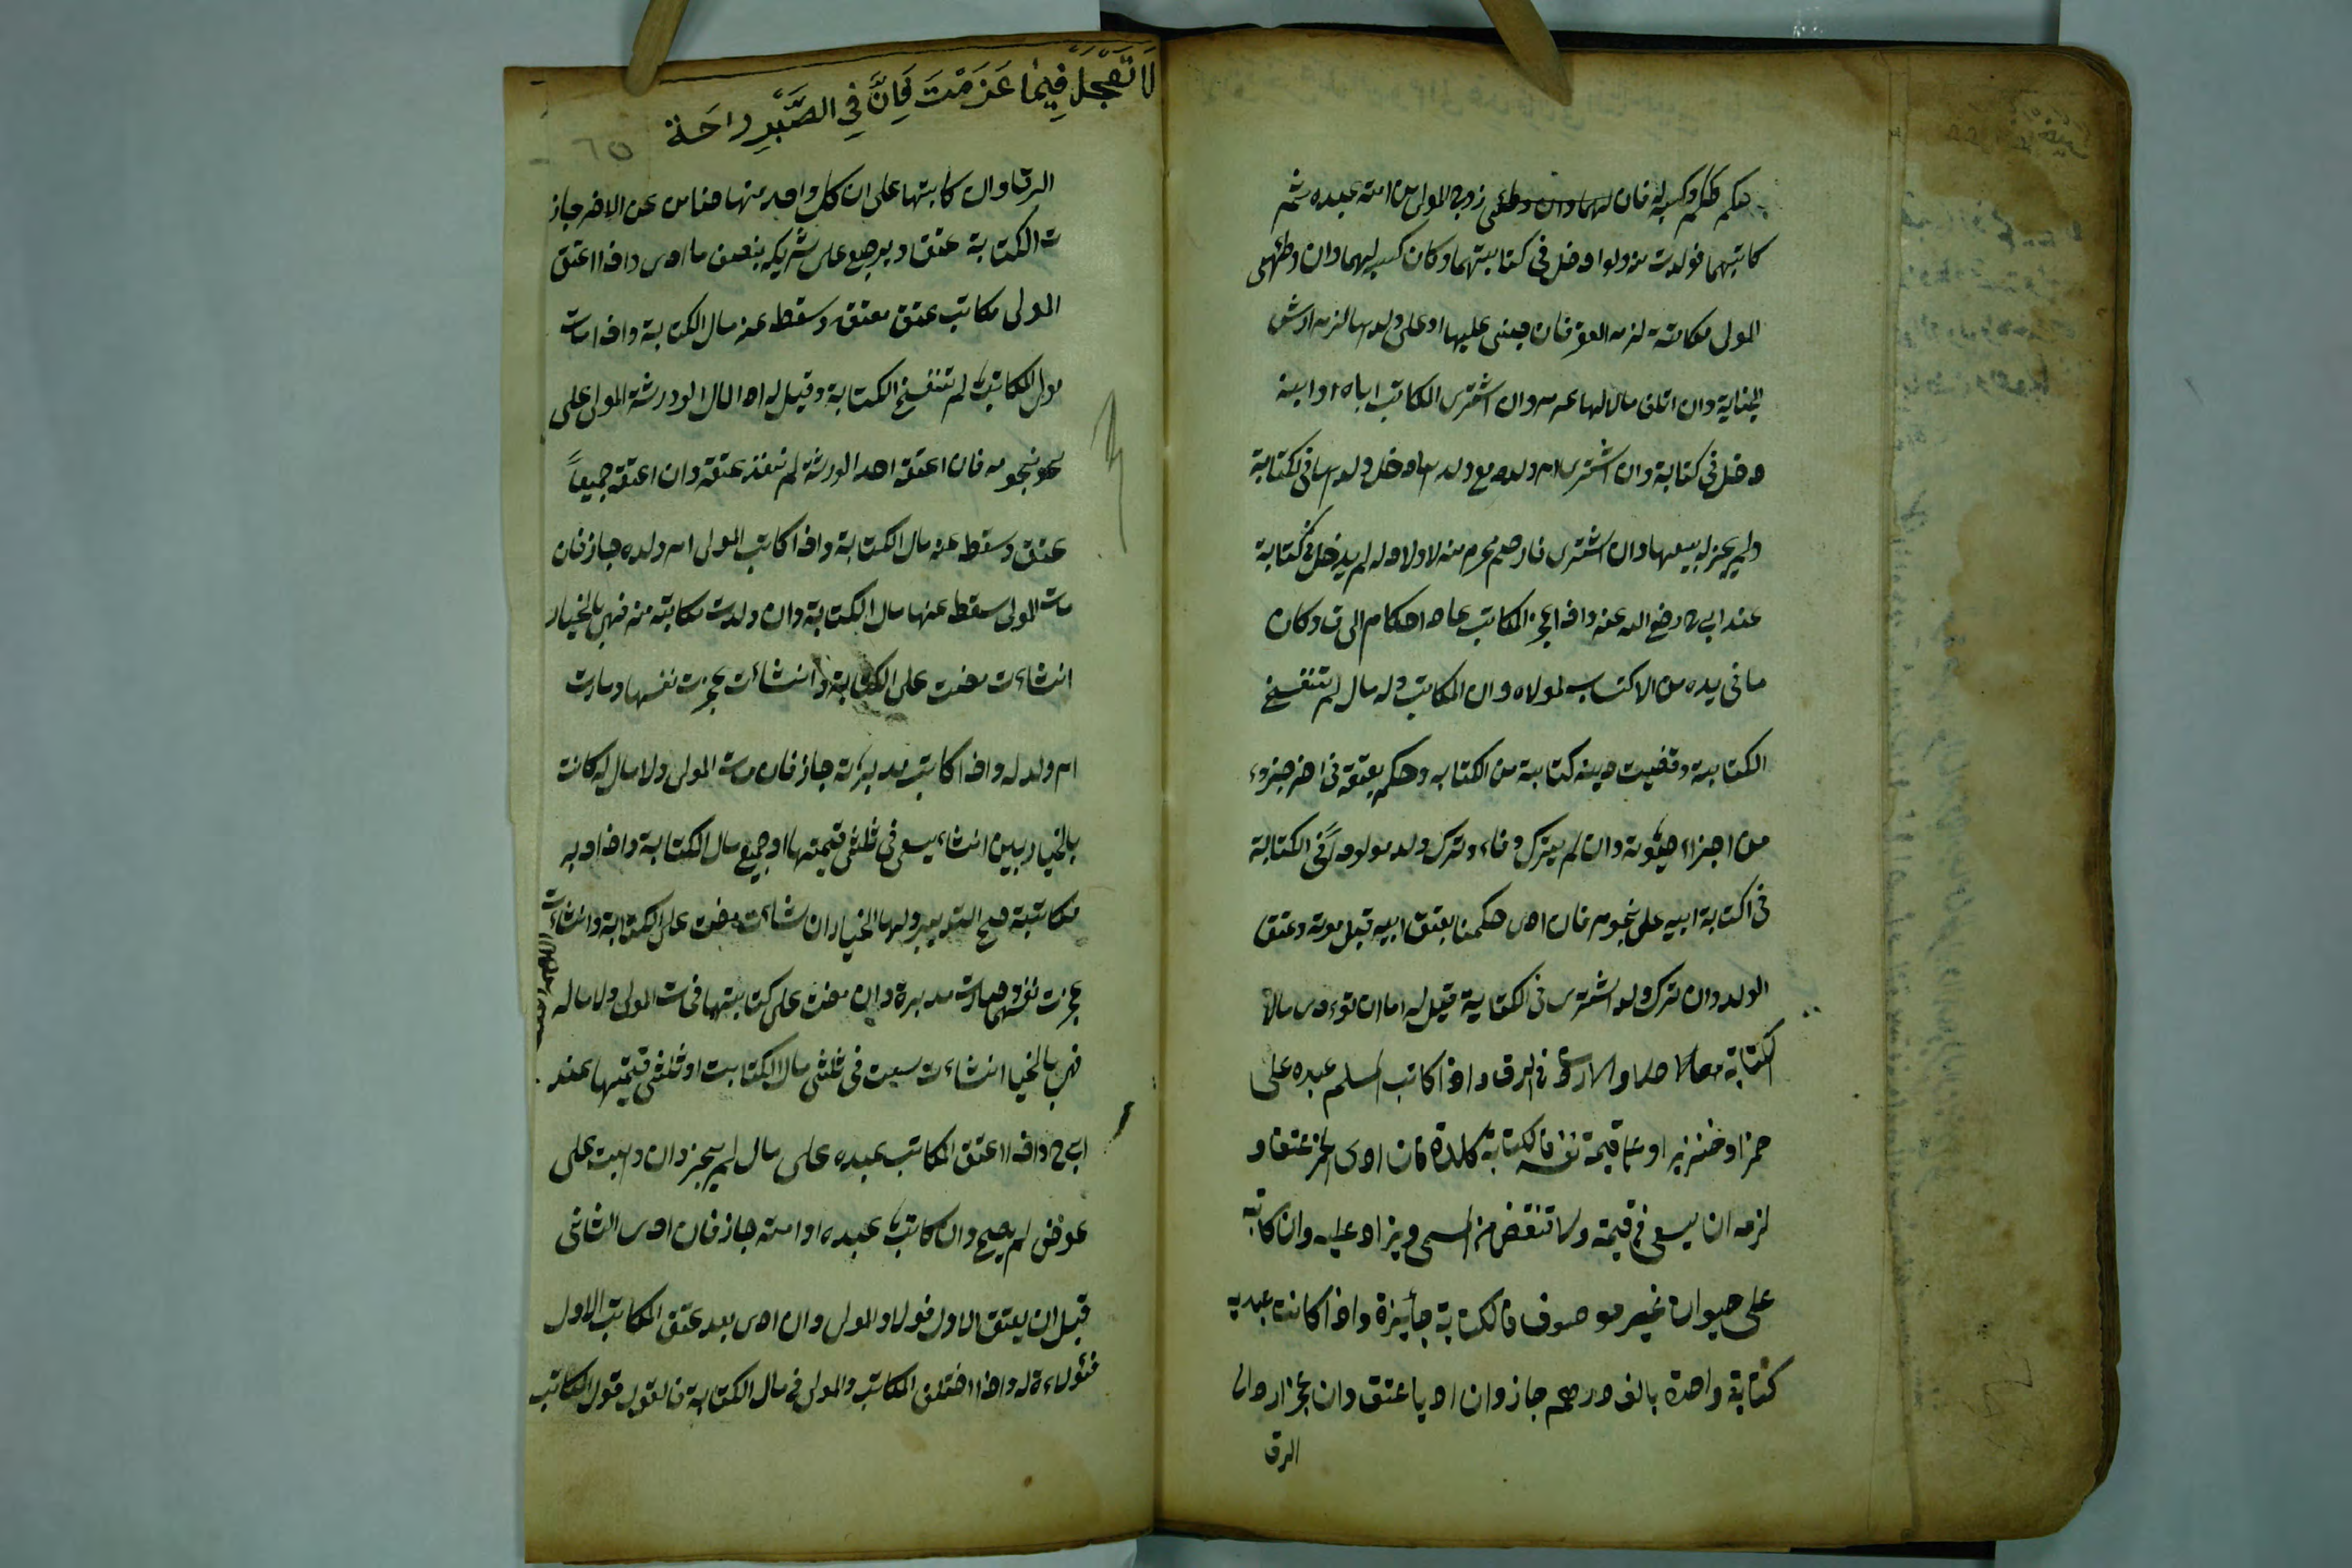 حكم حكمه وكسبه له فان زوج المولى من امته عبده ثم
كاتبهما فولدت منه ولدا دخل في كتابتهما وكان كسبه لهما وان وطئ
المولى مكاتبته لزمه العقر فان جنى عليها او على ولدها لزمه ارش
الجناية وان اتلف مالا لها غرمه وان اشترى المكاتب اباه او ابنه
دخل في كتابة وان اشترى ام ولده مع ولدها دخل ولدها في الكتابة
ولم يجز له بيعها وان اشترى ذا رحم محرم منه لا ولاد له لم يدخل في كتابة
عند ابي ح رضي الله عنه واذا عجز المكاتب عاد احكام الرق وكان
ما في يده من الاكتساب لمولاه وان المكاتب وله مال لم تنفسخ
الكتابة وقضيت دينه كتابية من الكتابه وحكم بعتقه في اخر جزوء
من اجزاء حيٰوته وان لم يترك وفاء وترك ولد مولودا في الكتابة
في اكتابة ابيه على نجومه فان ادى حكمنا بعتق ابيه قبل موته وعتق
الولد وان ترك ولد اشترى في الكتابة قيل له اما ان تؤدى مالا
الكتابة حالا والا رد في الرق واذا كاتب المسلم عبده على
خمر او خنزير او على قيمة نفسه فالكتابة فاسدة فان ادى الخمر عتق و
لزمه ان يسعى في قيمته ولا تنقض من المسمى ويزاد عليه وان كاتبه
على حيوان غير موصوف فالكتابة جائزة واذا كانت عبديه
كتابة واحدة بالف درهم جاز وان اديا عتق وان عجز اردا الى
الرق
لا تعجل فيما عزمت فان في الصبر راحة
٦٥
الرق وان كاتبها على ان كل واحد منها ضامن عن الاخر جاز
ت الكتابة عتق ويرجع على شريكه بنصف ما ادى واذا اعتق
المولى مكاتب عتق معتقه وسقط عنه مال الكتابة واذا مات
مولى المكاتب لم تنفسخ الكتابة وقيل له اد المال الى ورثة المولى على
نجومه فان اعتقه احد الورثة لم ينفذ عتقه وان اعتقه جميعاً
عتق وسقط عنه مال الكتابة واذا كاتب المولى ام ولده جاز فان
مات المولى سقط عنها مال الكتابة وان ولدت مكاتبته منه فهي بالخيار
انشاءت مضت على الكتابة وانشاءت عجزت نفسها وصارت
ام ولد له واذا كاتب مدبرته جاز فان مات المولى ولا مال له كانت
بالخيار بين انشاء يسعى في ثلثي قيمتها او جميع مال الكتابة واذا دبر
مكاتبته صح التدبير ولها الخيار ان شاءت مضت على الكتابة وانشاءت
عجزت نفسها وصارت مدبرة وان مضت على كتابتها فمات المولى ولا مال له
فهي بالخيا انشاءت سعت في ثلثي مال الكتابت او ثلثي قيمتها عند
ابي ح واذا اعتق المكاتب عبده على مال لم يجز وان وهبت على
عوض لم يصح وان كاتب عبده او امته جاز فان ادى الثاني
قبل ان يعتق الاول فولاء للمولى وان ادى بعد عتق المكاتب الاول
فولاءه له واذا اختلف المكاتب والمولى في مال الكتابة فالقول قول المكاتب